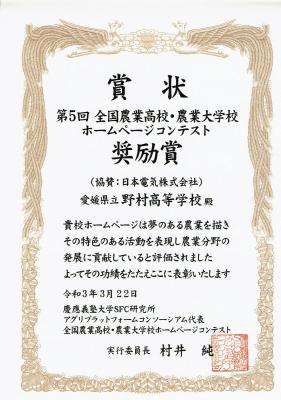 賞状
第5回 全国農業高校・農業大学校
ホームページコンテスト
奨励賞
(協賛：日本電気株式会社)
愛媛県立 野村高等学校 殿
貴校ホームページは夢のある農業を描き
その特色のある活動を表現し農業分野の
発展に貢献していると評価されました
よってその功績をたたえここに表彰いたします
令和3年3月22日
慶應義塾大学SFC研究所
アグリプラットフォームコンソーシアム代表
全国農業高校・農業大学校ホームページコンテスト
実行委員長 村井 純